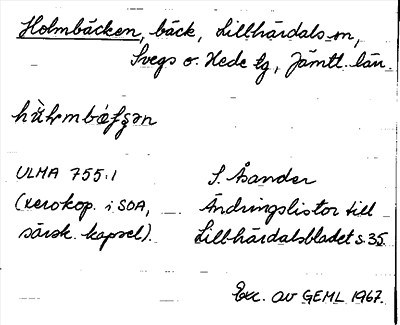 Holmbäcken, bäck, Lillhärdals sn,
Svegs o. Hede tg, Jämtl. län.
ULMA 755:1 S. Åsander
(xerokop. i SOA, Ändringslistor till
särsk. kapsel). Lillhärdalsbladet s. 35.
Exc. av GEML 1967.